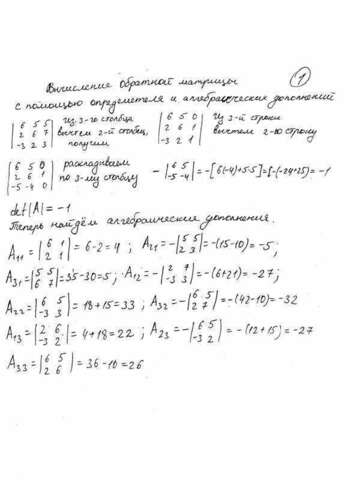 Вычисление обратной матрицы ①
с помощью определителя и алгебраических дополнений
|6 5 5| Из 3-го столбца |6 5 0| Из 3-й строки
|2 6 7| вычтем 2-й столбец, |2 6 1| вычтем 2-ю строку
|-3 2 3| получим |-3 2 1|
|6 5 0| раскладываем
|2 6 1| по 3-му столбцу -|6 5; -5 -4| = -[6(-4)+5·5]=[-(-24+25)=-1
|-5 -4 0|
det|A| = -1
Теперь найдём алгебраические дополнения.
A₁₁ = |6 1; 2 1| = 6-2=4; A₂₁ = -|5 5; 2 3| = -(15-10) = -5;
A₃₁ = |5 5; 6 7| = 35-30=5; A₁₂ = -|2 7; -3 3| = -(6+21) = -27;
A₂₂ = |6 5; -3 3| = 18+15 = 33; A₃₂ = -|6 5; 2 7| = -(42-10) = -32
A₁₃ = |2 6; -3 2| = 4+18 = 22; A₂₃ = -|6 5; -3 2| = -(12+15) = -27
A₃₃ = |6 5; 2 6| = 36-10 = 26